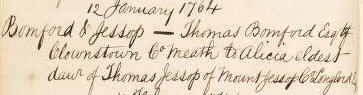 12 January 1764
Bomford & Jessop — Thomas Bomford Esq of
Clownstown Co Meath to Alicia eldest
daur of Thomas Jessop of Mount Jessop Co Longford